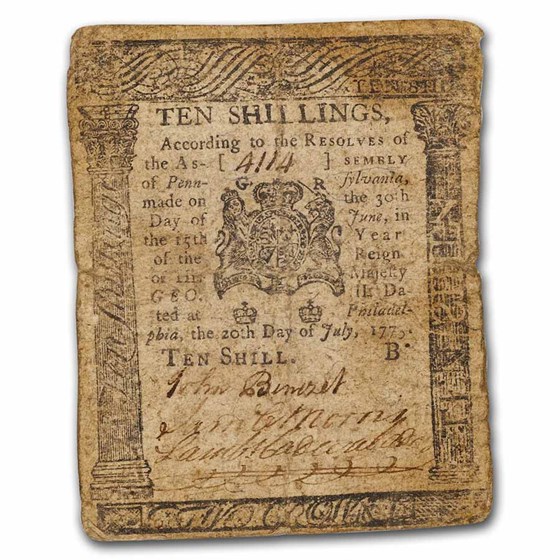 TEN SHIL
TEN SHILLINGS,
According to the RESOLVES of
the As- [ 4114 ] SEMBLY
of Penn- G R sylvania,
made on the 30th
Day of June, in
the 15th Year
of the Reign
of Majesty
GEO. III. Da
ted at Philadel-
phia, the 20th Day of July, 1775.
TEN SHILL. B.
John Benezet
Sam C Morris
Ten Shillings